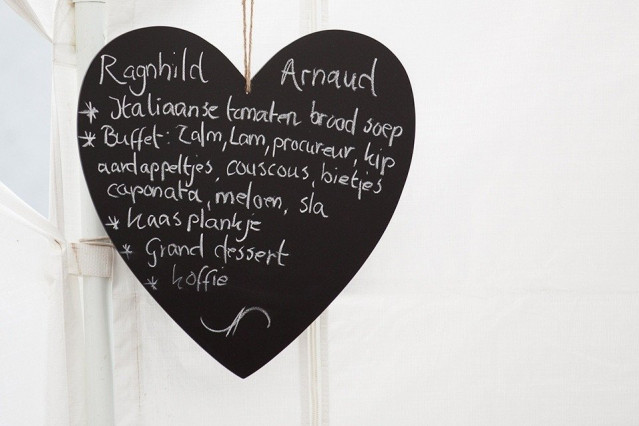 Ragnhild Arnaud
* Italiaanse tomaten brood soep
* Buffet: Zalm, Lam, procureur, kip
aardappeltjes, couscous, bietjes
caponata, meloen, sla
* Kaasplankje
* Grand dessert
* Koffie